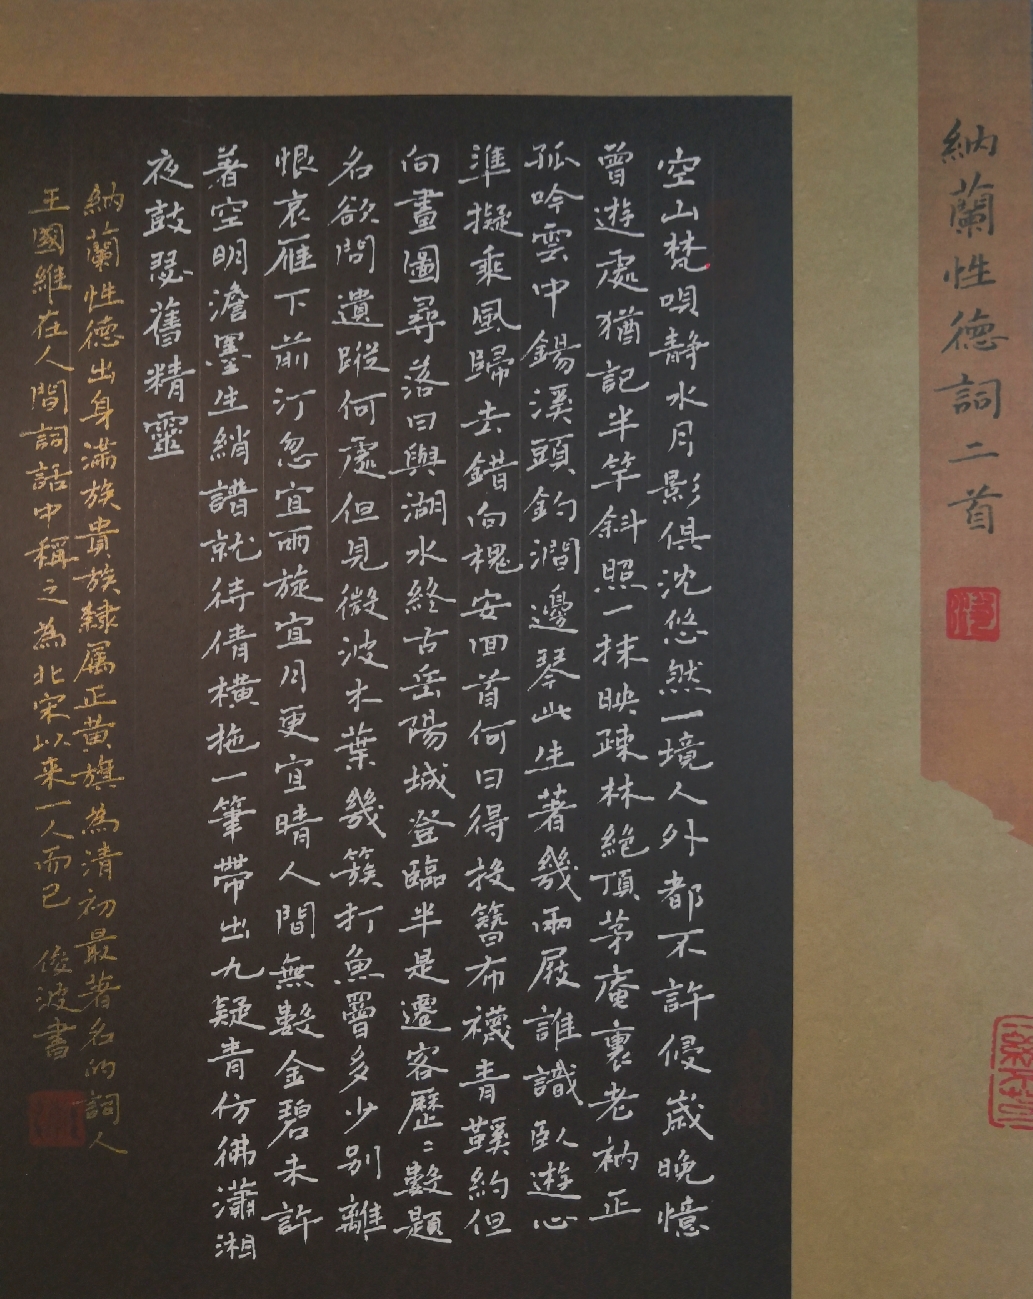 納蘭性德詞二首
空山梵唄靜水月影俱沈悠然一境人外都不許侵歲晚憶
曾遊處猶記半竿斜照一抹映疎林絕頂茅庵裏老衲正
孤吟雲中錫溪頭釣澗邊琴此生著幾兩屐誰識臥遊心
準擬乘風歸去錯向槐安回首何日得投簪布襪青鞵約但
向畫圖尋落日與湖水終古岳陽城登臨半是遷客歷〻數題
名欲問遺蹤何處但見微波木葉幾簇打魚罾多少別離
恨哀雁下前汀忽宜雨旋宜月更宜晴人間無數金碧未許
著空明澹墨生綃譜就待倩橫拖一筆帶出九疑青仿彿瀟湘
夜鼓瑟舊精靈
納蘭性德出身滿族貴族隸屬正黃旗為清初最著名的詞人
王國維在人間詞話中稱之為北宋以來一人而已 俊波書